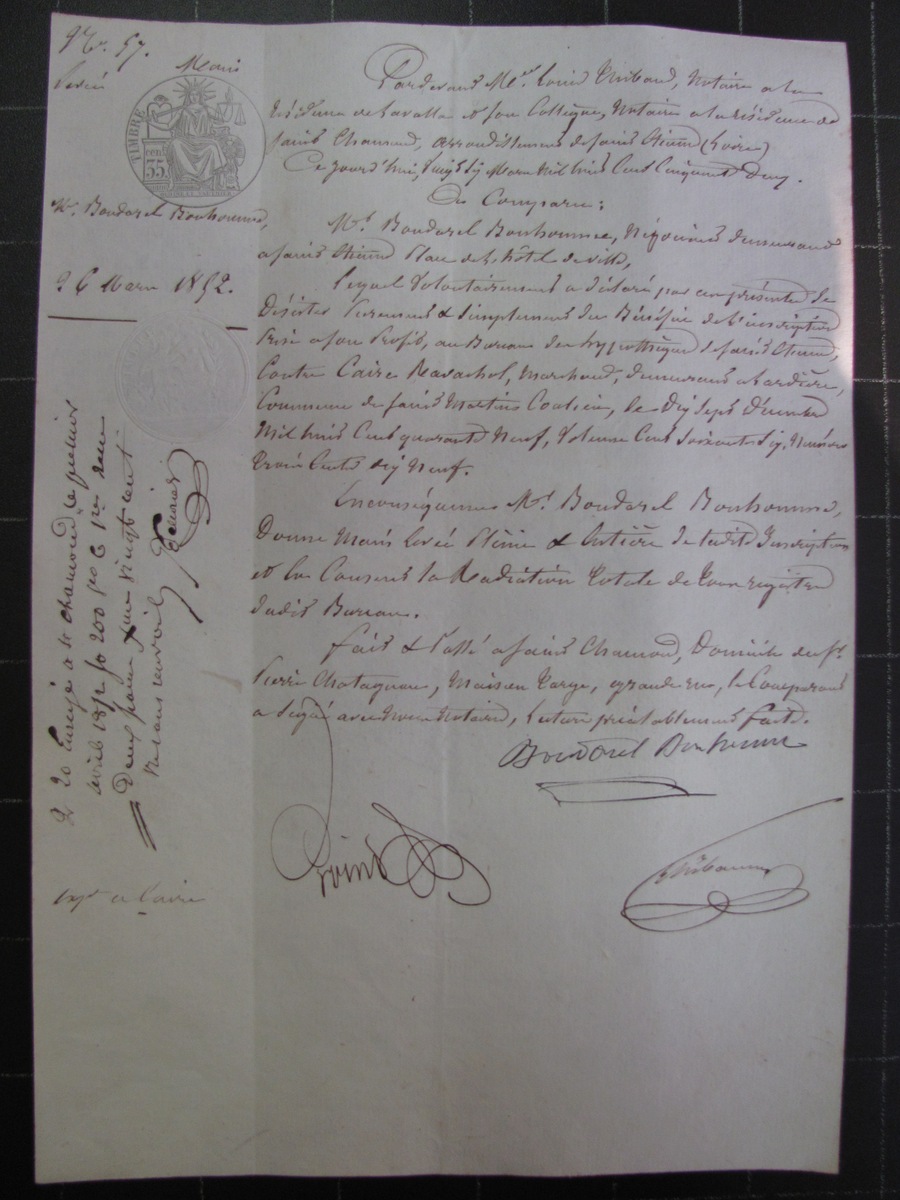 No. 97.
Main
levée
TIMBRE
55 cen
Mr. Boudarel Bonhomme,
26 Mars 1852.
Pardevant Me. Louis Thibaud, Notaire a la
résidence de Lavalla et son Collègue, Notaire a la résidence de
Saint Chamond, arrondissement de Saint Etienne (Loire)
Ce jourd'hui, Vingt six Mars Mil huit Cent Cinquante deux.
Est Comparu:
Mr. Boudarel Bonhomme, Négociant demeurant
a Saint Etienne Place de l'hôtel de ville,
Lequel Volontairement a déclaré par ces présentes se
Désister Purement & simplement du Bénéfice de l'inscription
Prise a son Profit, au Bureau des hypothèques de Saint Etienne,
Contre Caire Ravachol, Marchand, demeurant a
Commune de Saint Martin Coalieu, le Dix sept
Mil huit Cent quarante Neuf, Volume Cent soixante six, Numéro
Trois Cents dix Neuf.
En conséquence Mr. Boudarel Bonhomme,
Donne Main Levée Pleine & Entière de ladite Inscription
et en Consent la Radiation Totale de tous registres
dudit Bureau.
Fait & Passé a Saint Chamond, Domicile du Sr.
Pierre Chatagnon, Maison grande rue, le Comparant
a Signé avec Nous Notaires, lecture préalablement faite.
Boudarel Bonhomme
Thibaud
Enregé a St. Chamond le premier
avril 1852 fo 200 Vo C 1re reçu
Deux francs & une vingt cent
expn a Caire